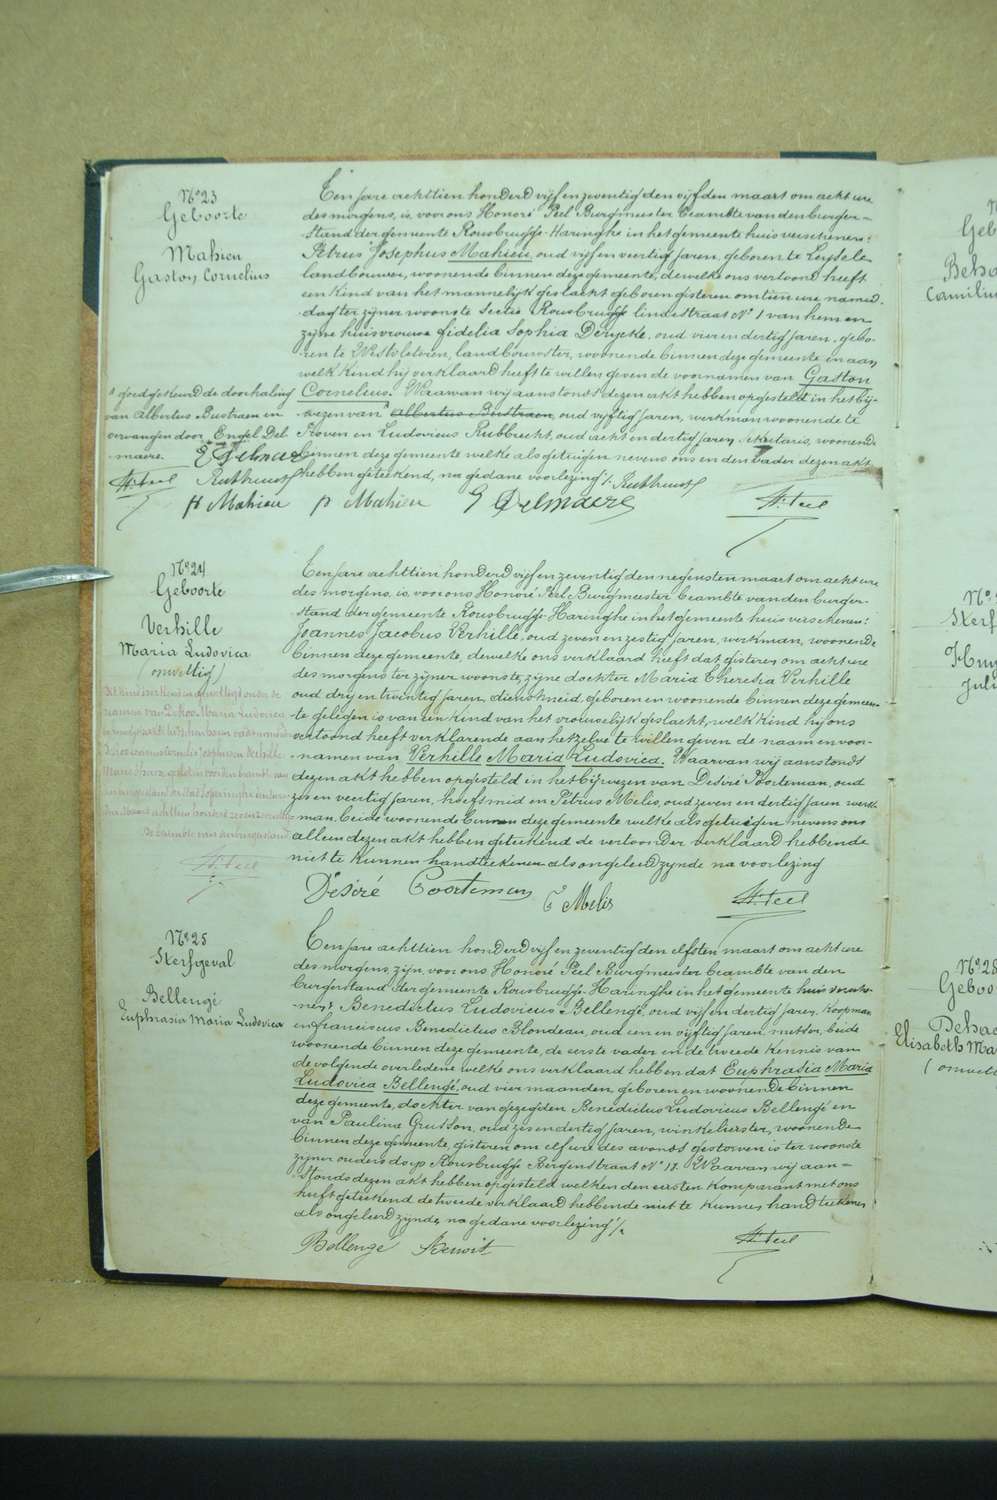 N° 23
Geboorte
Mahieu
Gaston, Cornelius
Ten jare achttien honderd vijf en zeventig den vijfden maart om acht ure
des morgens, is voor ons Honoré Peel Burgmeester beambte van den burger-
stand der gemeente Rousbrugge-Haringhe in het gemeente huis verschenen:
Petrus Josephus Mahieu, oud vijf en veertig jaren, geboren te Leysele
landbouwer, woonende binnen deze gemeente, dewelke ons vertoond heeft
een kind van het mannelyk geslacht geboren gisteren om tien ure namid-
dag ter zijner woonste sectie Rousbrugge lindestraat N° 1 van hem en
zijne huisvrouwe Fidelia Sophia Derycke, oud vier en dertig jaren, gebo-
ren te Westvleteren, landbouwster, woonende binnen deze gemeente en aan
welk kind hij verklaard heeft te willen geven de voornamen van Gaston
Cornelius. Waarvan wij aanstonds dezen akt hebben opgesteld in het bij-
wezen van Albertus Bustraen, oud vijftig jaren, werkman woonende te
Hoven en Ludovicus Rubbrecht, oud acht en dertig jaren, sekretaris, woonende
binnen deze gemeente welke als getuigen nevens ons en den vader dezen akt
hebben geteekend, na gedane voorlezing
goedgekeurd de doorhaling
van Albertus Bustraen en
vervangen door Engel Del
maere.
E Delmaere
H. Peel
p Mahieu
p Mahieu
E Delmaere
H. Peel
N° 24
Geboorte
Verhille
Maria Ludovica
(onwettig)
Ten jare achttien honderd vijf en zeventig den negensten maart om acht ure
des morgens, is voor ons Honoré Peel Burgmeester beambte van den burger-
stand der gemeente Rousbrugge-Haringhe in het gemeente huis verschenen:
Joannes Jacobus Verhille, oud zeven en zestig jaren, werkman, woonende
binnen deze gemeente, dewelke ons verklaard heeft dat gisteren om acht ure
des morgens ter zijner woonste, zijne dochter Maria Theresia Verhille
oud dry en twintig jaren, dienstmeid, geboren en woonende binnen deze gemeen-
te gelegen is van een kind van het vrouwelijk geslacht, welk kind hij ons
vertoond heeft verklarende aan hetzelve te willen geven de naam en voor-
namen van Verhille Maria Ludovica. Waarvan wij aanstonds
dezen akt hebben opgesteld in het bijwezen van Desiré Coorteman, oud
zes en veertig jaren, hoefsmid en Petrus Melis, oud zeven en dertig jaren werk-
man, beide woonende binnen deze gemeente welke als getuigen nevens ons
alleen dezen akt hebben geteekend de vertooner verklaard hebbende
niet te kunnen handteekenen als ongeleerd zynde na voorlezing
H. Peel
Desiré Coorteman
P Melis
H. Peel
N° 25
Sterfgeval
Bellengé
Euphrasia Maria Ludovica
Ten jare achttien honderd vijf en zeventig den elfsten maart om acht ure
des morgens, zijn voor ons Honoré Peel Burgmeester beambte van den
burgerstand der gemeente Rousbrugge-Haringhe in het gemeente huis versche-
nen: Benedictus Ludovicus Bellengé, oud vijf en dertig jaren, koopman
en Franciscus Benedictus Blondeau, oud een en vijftig jaren, metser, beide
woonende binnen deze gemeente, de eerste vader en de tweede kennis van
de volgende overledene welke ons verklaard hebben dat Euphrasia Maria
Ludovica Bellengé, oud vier maanden, geboren en woonende binnen
deze gemeente, dochter van gezegden Benedictus Ludovicus Bellengé en
van Paulina Grusson, oud zes en dertig jaren, winkelierster, woonende
binnen deze gemeente, gisteren om elf ure des avonds gestorven is ter woonste
zijner ouders dorp Rousbrugge Bergenstraat N° 17. Waarvan wij aan-
stonds dezen akt hebben opgesteld welken den eersten komparant met ons
heeft geteekend de tweede verklaard hebbende niet te kunnen handteekenen
als ongeleerd zynde, na gedane voorlezing
Bellenge Benoit
H. Peel